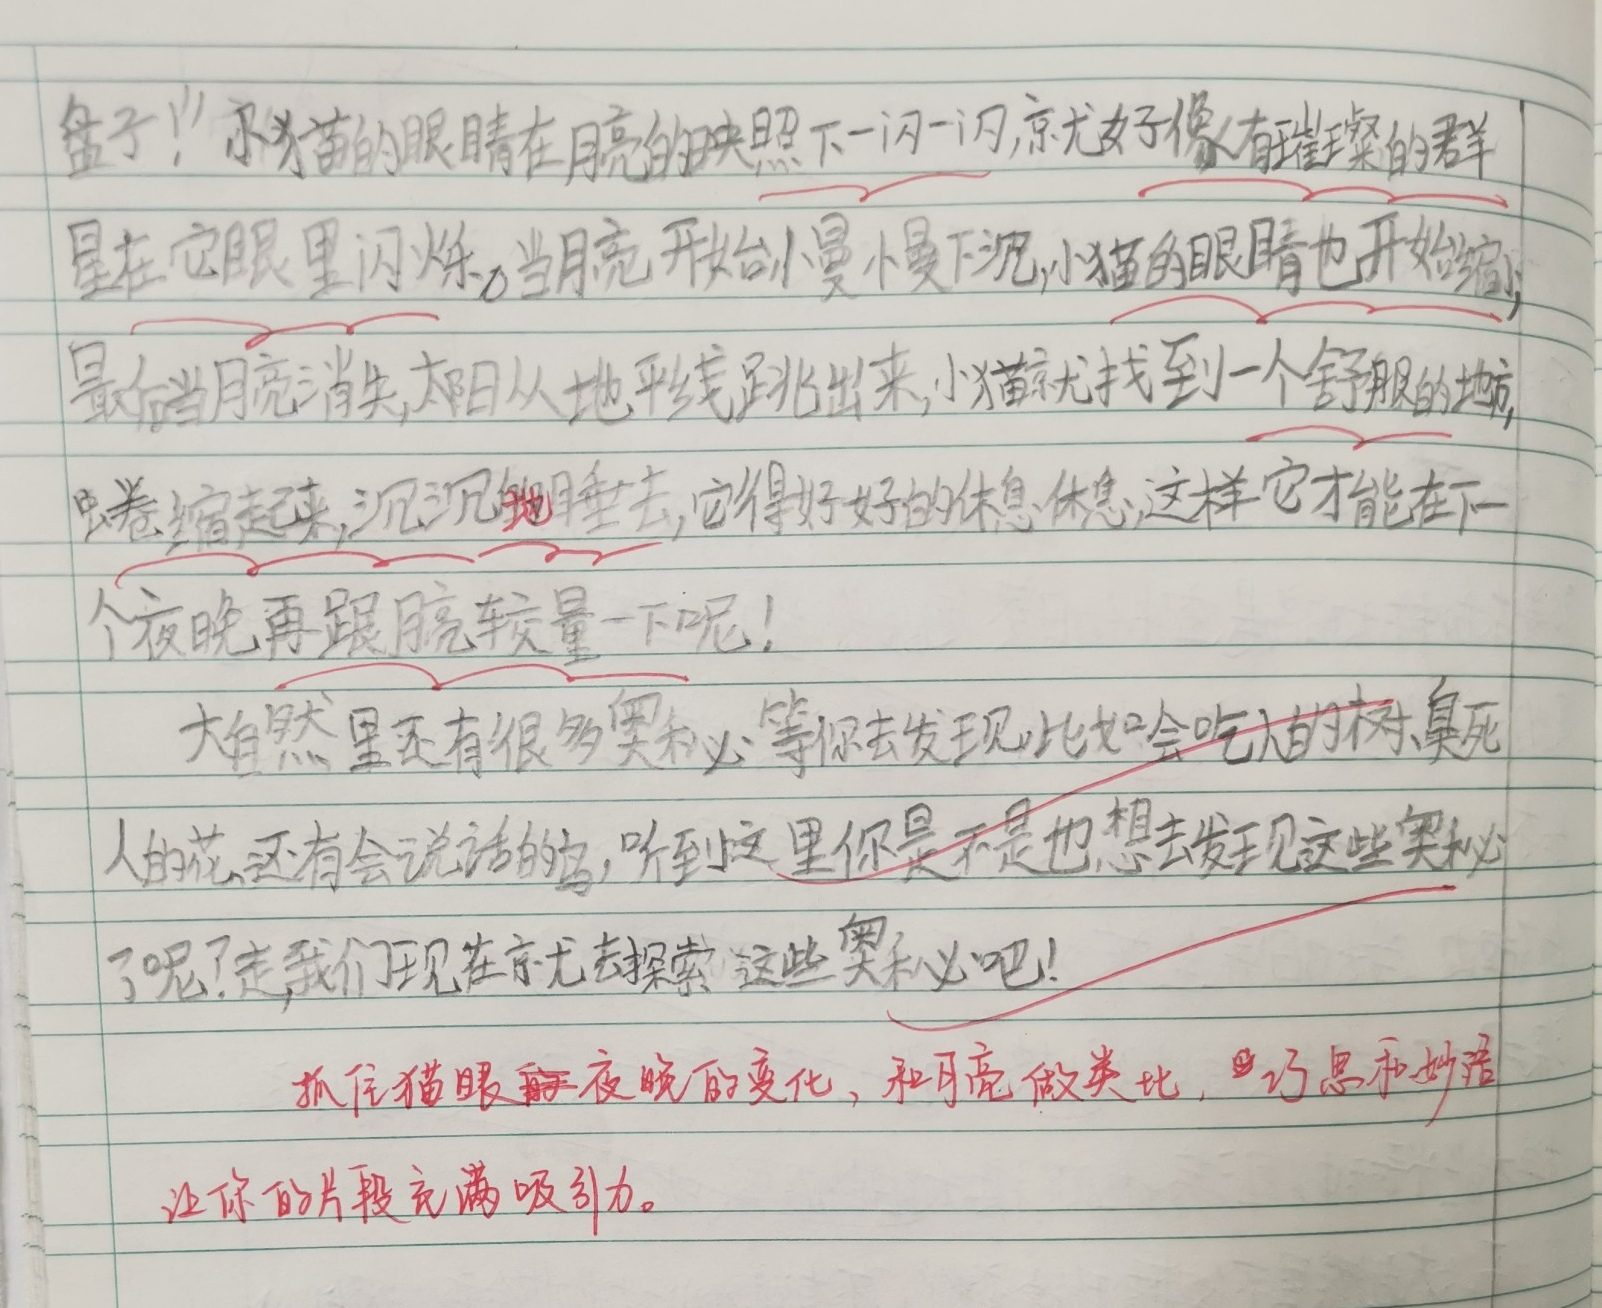 盘子！”小猫的眼睛在月亮的映照下一闪一闪，就好像有璀璨的群
星在它眼里闪烁。当月亮开始慢慢下沉，小猫的眼睛也开始缩小，
最后当月亮消失，太阳从地平线跳出来，小猫就找到一个舒服的地方，
蜷缩起来，沉沉地睡去，它得好好的休息休息，这样它才能在下一
个夜晚再跟月亮较量一下呢！
大自然里还有很多奥秘等你去发现，比如会吃人的树、臭死
人的花、还有会说话的鸟，听到这里你是不是也想去发现这些奥秘
了呢？走，我们现在就去探索这些奥秘吧！
抓住猫眼夜晚的变化，和月亮做类比，巧思和妙语
让你的片段充满吸引力。